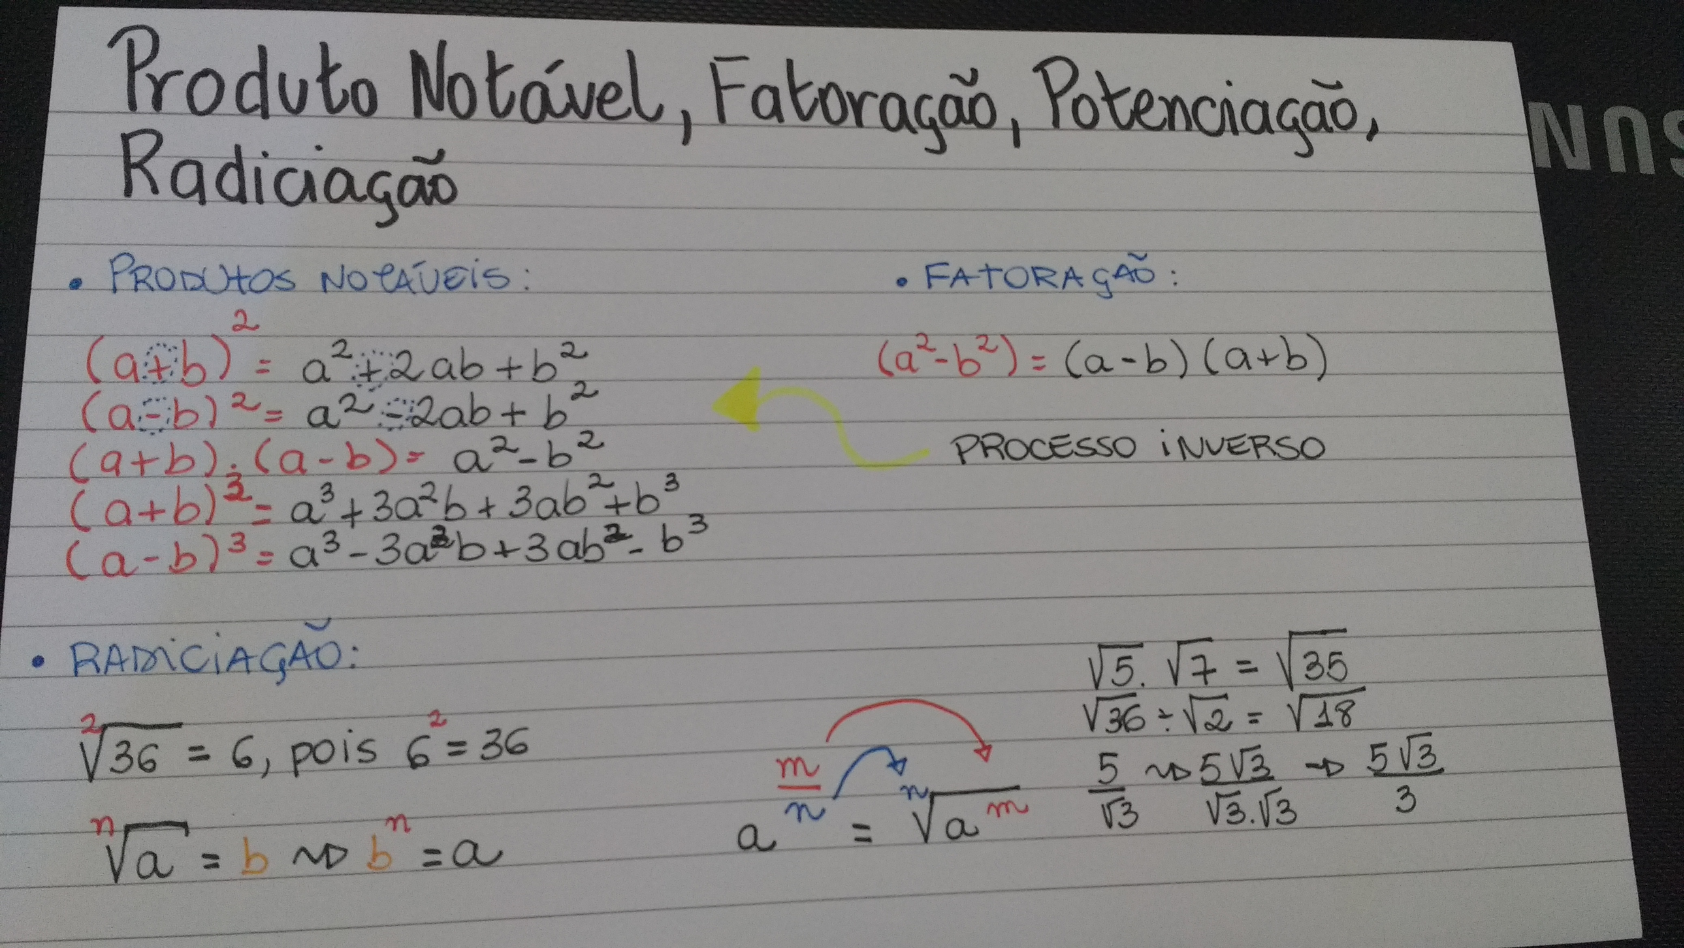 Produto Notável, Fatoração, Potenciação,
Radiciação
• PRODUTOS NOTÁVEIS:
(a+b)² = a² + 2ab + b²
(a-b)² = a² - 2ab + b²
(a+b).(a-b) = a² - b²
(a+b)³ = a³ + 3a²b + 3ab² + b³
(a-b)³ = a³ - 3a²b + 3ab² - b³
• FATORAÇÃO:
(a²-b²) = (a-b) (a+b)
PROCESSO INVERSO
• RADICIAÇÃO:
²√36 = 6, pois 6² = 36
ⁿ√a = b ⇝ bⁿ = a
a^(m/n) = ⁿ√a^m
√5 . √7 = √35
√36 ÷ √2 = √18
5/√3 ⇝ 5√3/√3.√3 → 5√3/3
SUN